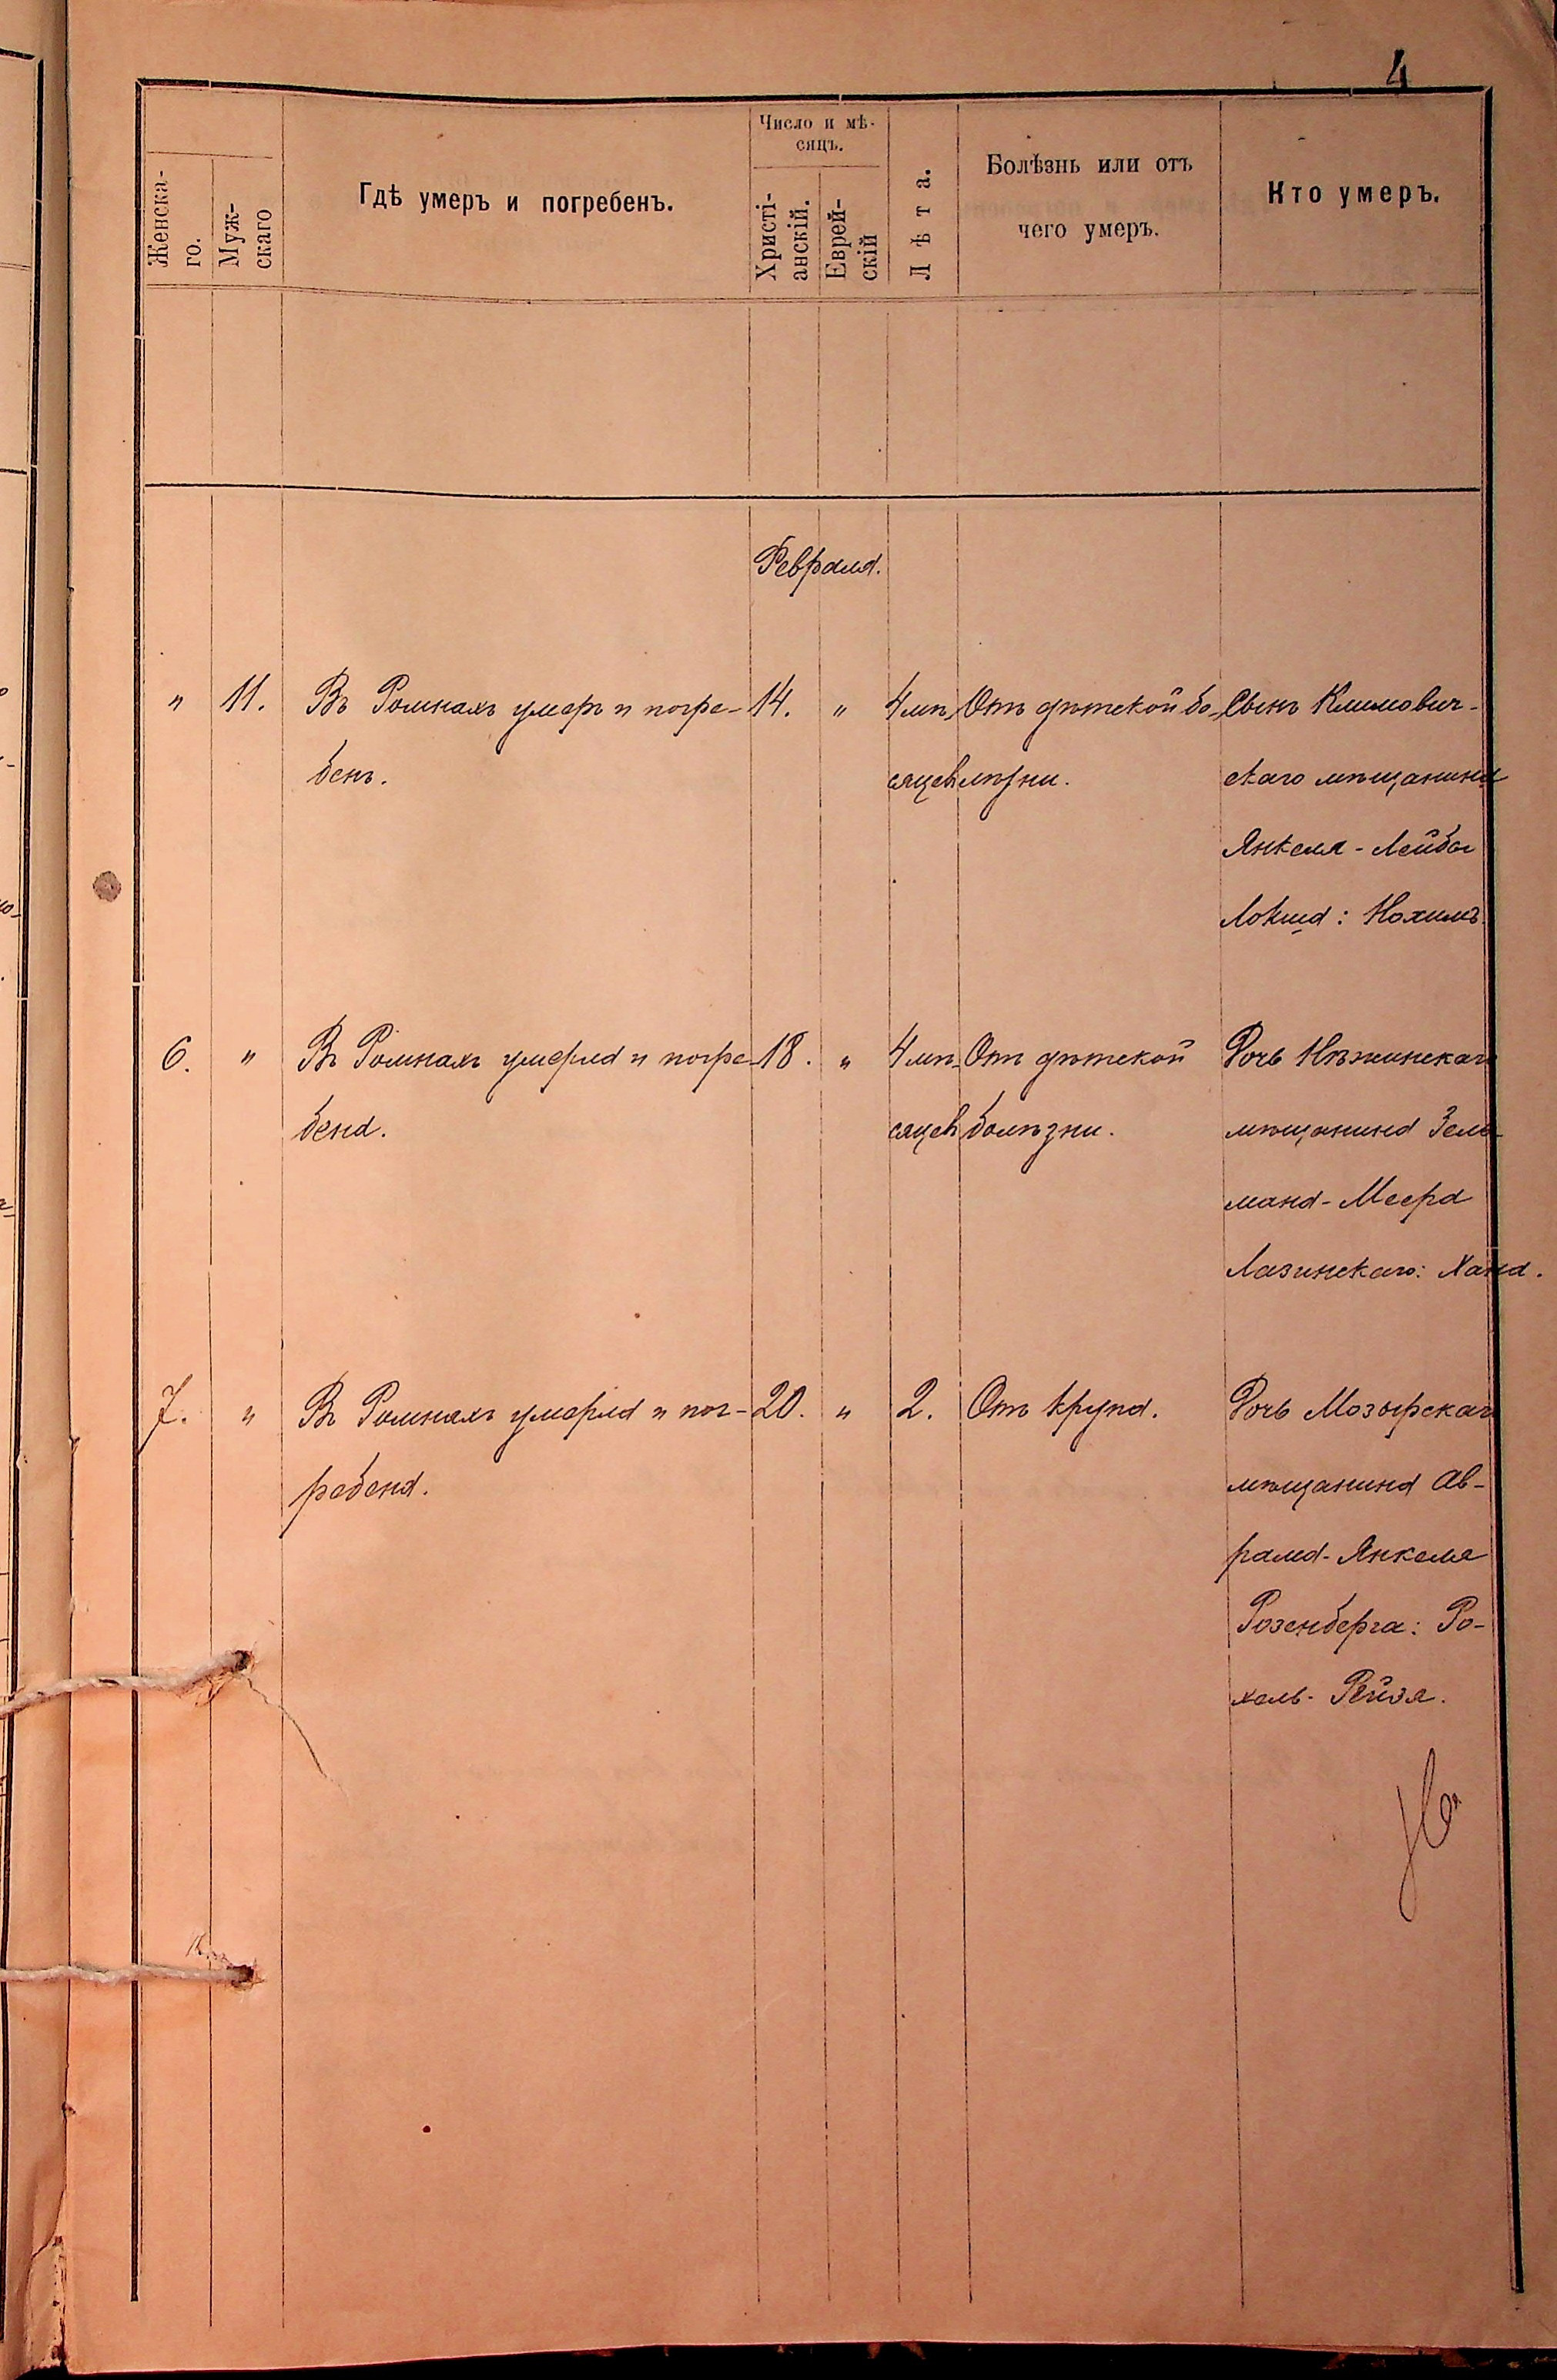 4
Женска-
го.
Муж-
скаго
Гдѣ умеръ и погребенъ.
Число и мѣ-
сяцъ.
Христі-
анскій.
Еврей-
скій
Лѣта.
Болѣзнь или отъ
чего умеръ.
Кто умеръ.
Февраля.
" 11. Въ Ромнахъ умеръ и погре- 14. " 4 мѣ- Отъ дѣтской бо- Сынъ Климович-
бенъ. сяцевъ лѣзни. скаго мѣщанина
Янкеля-Лейбы
Локша: Нохимъ.
6. " Въ Ромнахъ умерла и погре- 18. " 4 мѣ- Отъ дѣтской Дочь Нѣжинскаго
бена. сяцевъ болѣзни. мѣщанина Зель-
мана-Меера
Лазинскаго: Хана.
7. " Въ Ромнахъ умерла и пог- 20. " 2. Отъ крупа. Дочь Мозырскаго
ребена. мѣщанина Ав-
рама-Янкеля
Розенберга: Ро-
хель-Рейзя.